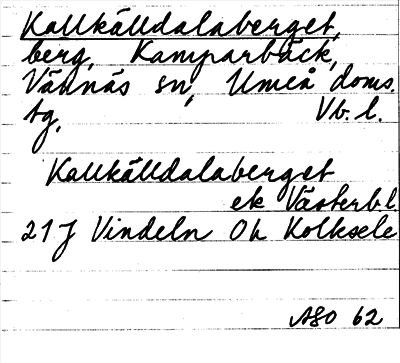 Kallkälldalaberget,
berg, Kamparbäck,
Vännäs sn, Umeå doms.
tg, Vb. l.
Kallkälldalaberget
ek Västerbl.
21 J Vindeln Oh Kolksele
ASO 62